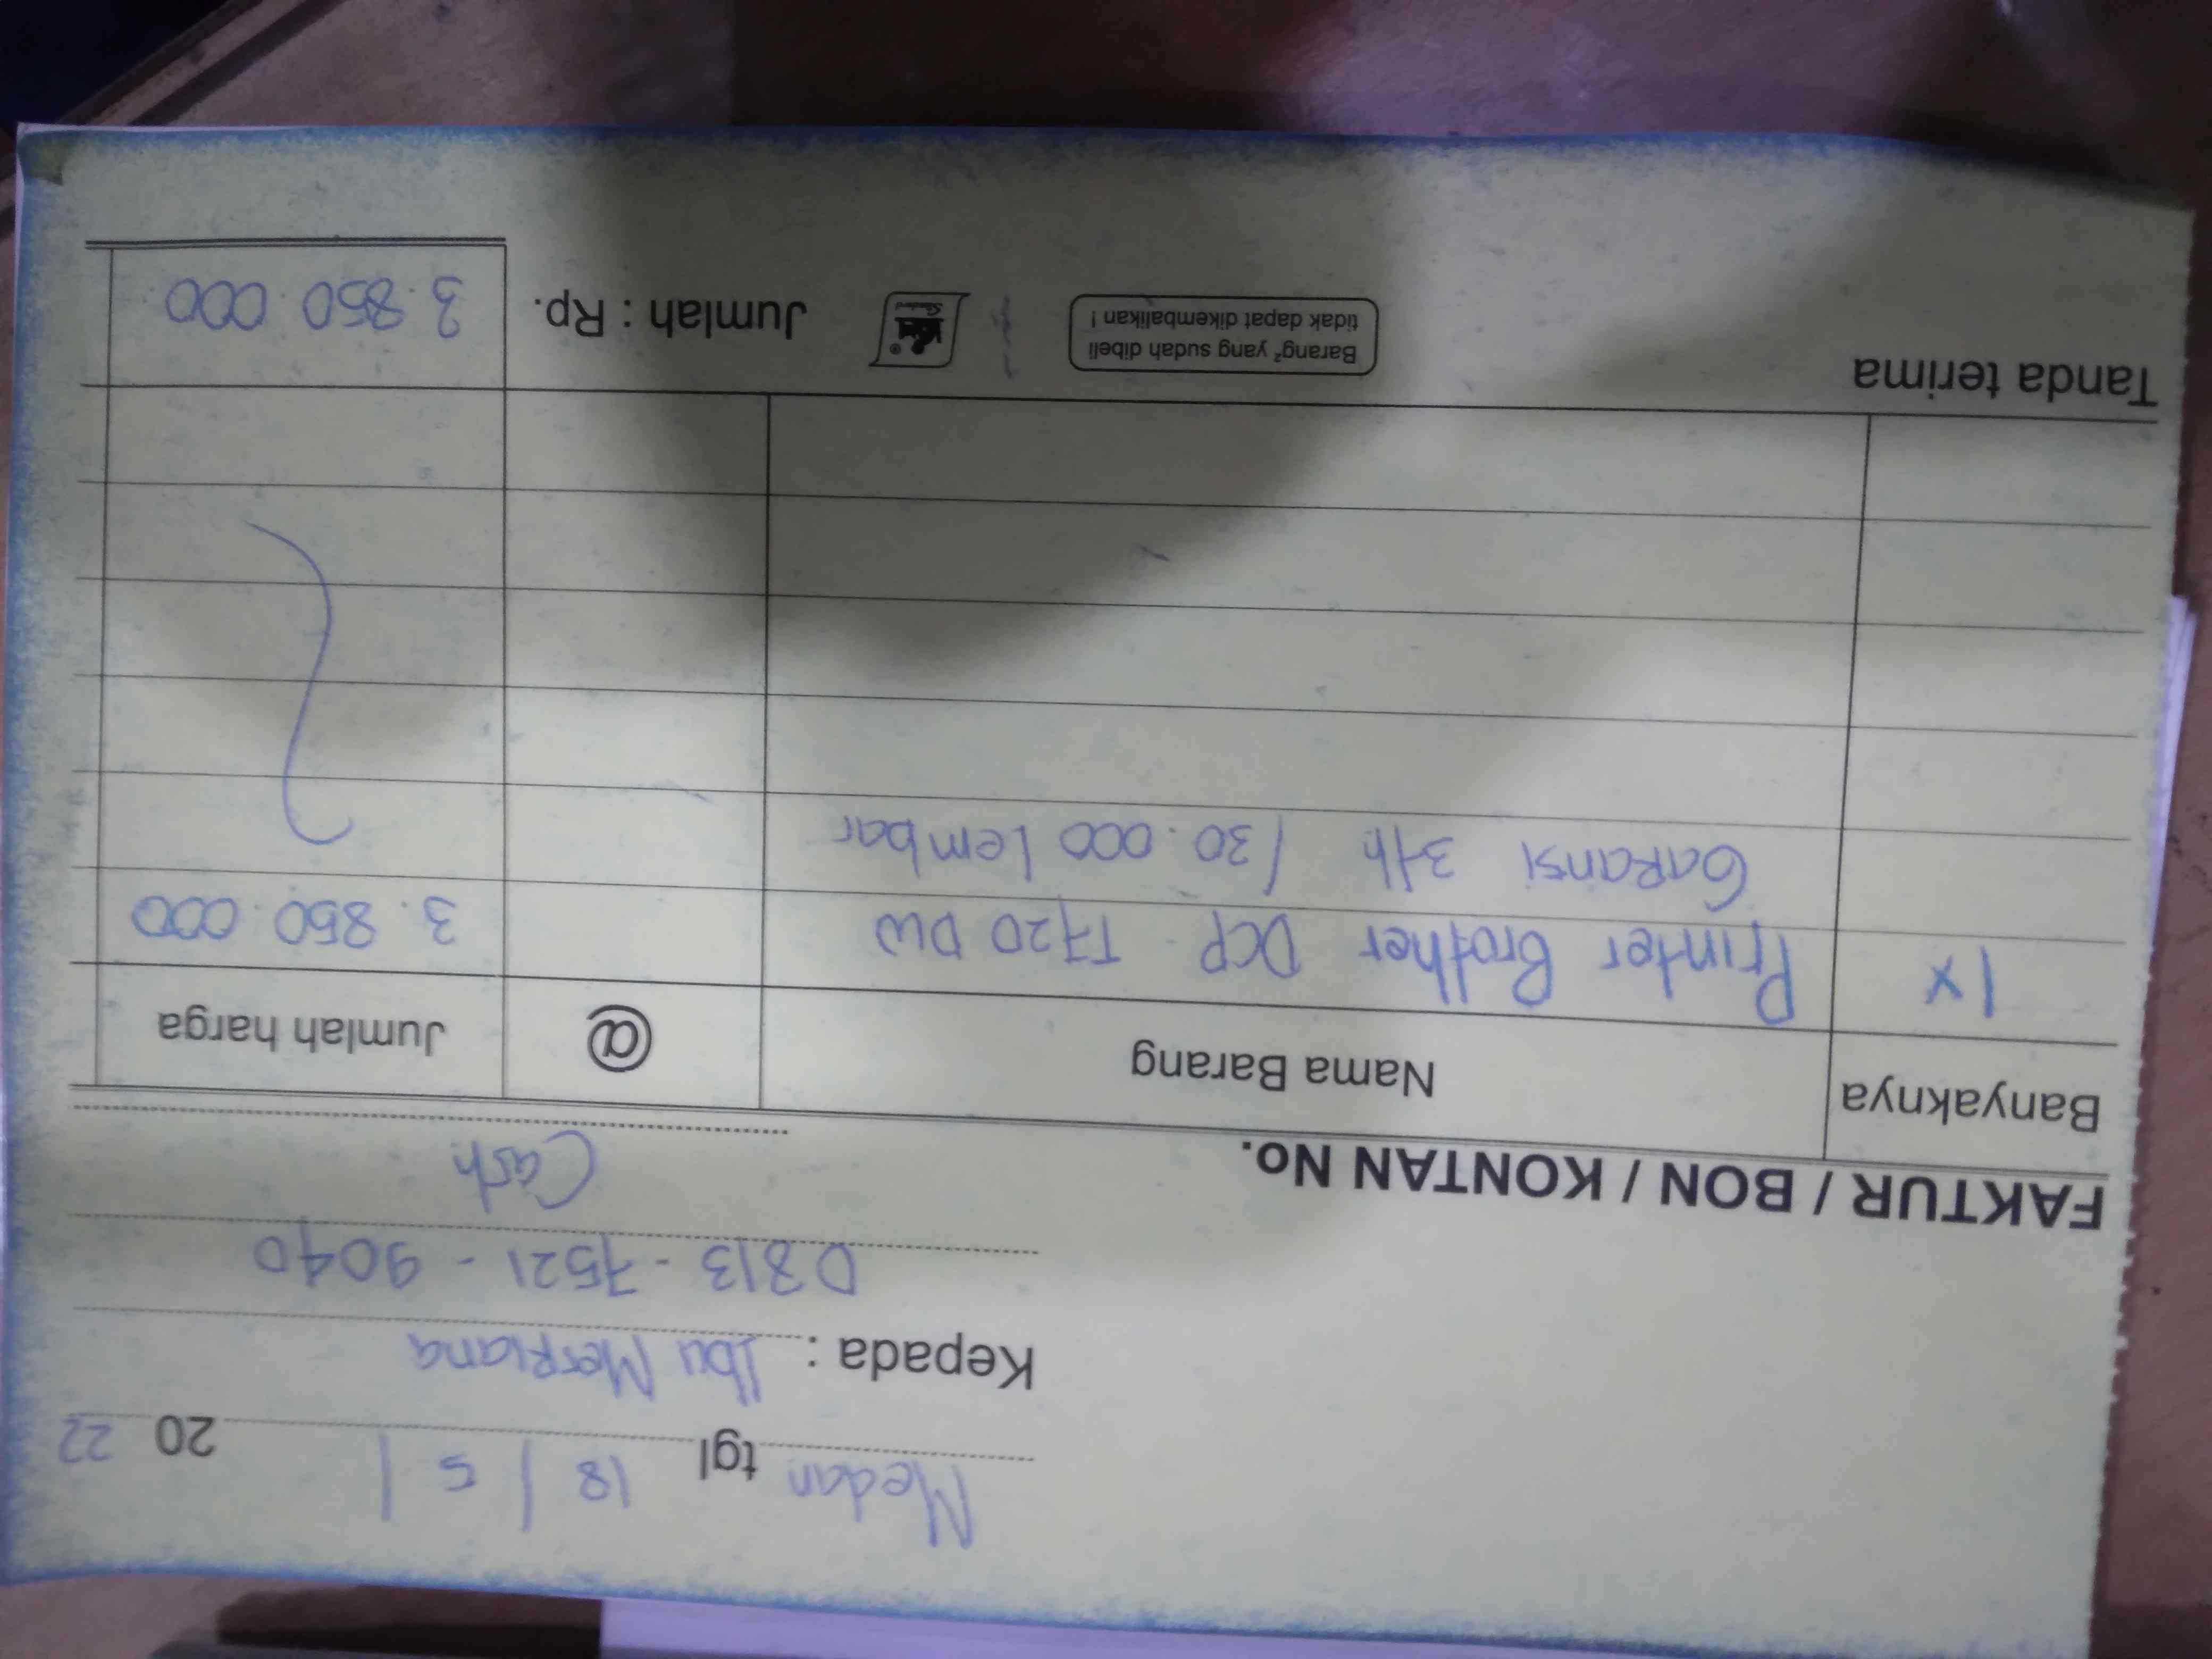 Medan tgl 18 / 5 / 20 22
Kepada : Ibu Meriana
0813 - 7521 - 9040
Cash
FAKTUR / BON / KONTAN No.
Banyaknya Nama Barang @ Jumlah harga
1x Printer Brother DCP T720 DW 3.850.000
Garansi 3th / 30.000 Lembar
Tanda terima
Barang² yang sudah dibeli
tidak dapat dikembalikan !
Jumlah : Rp. 3.850.000